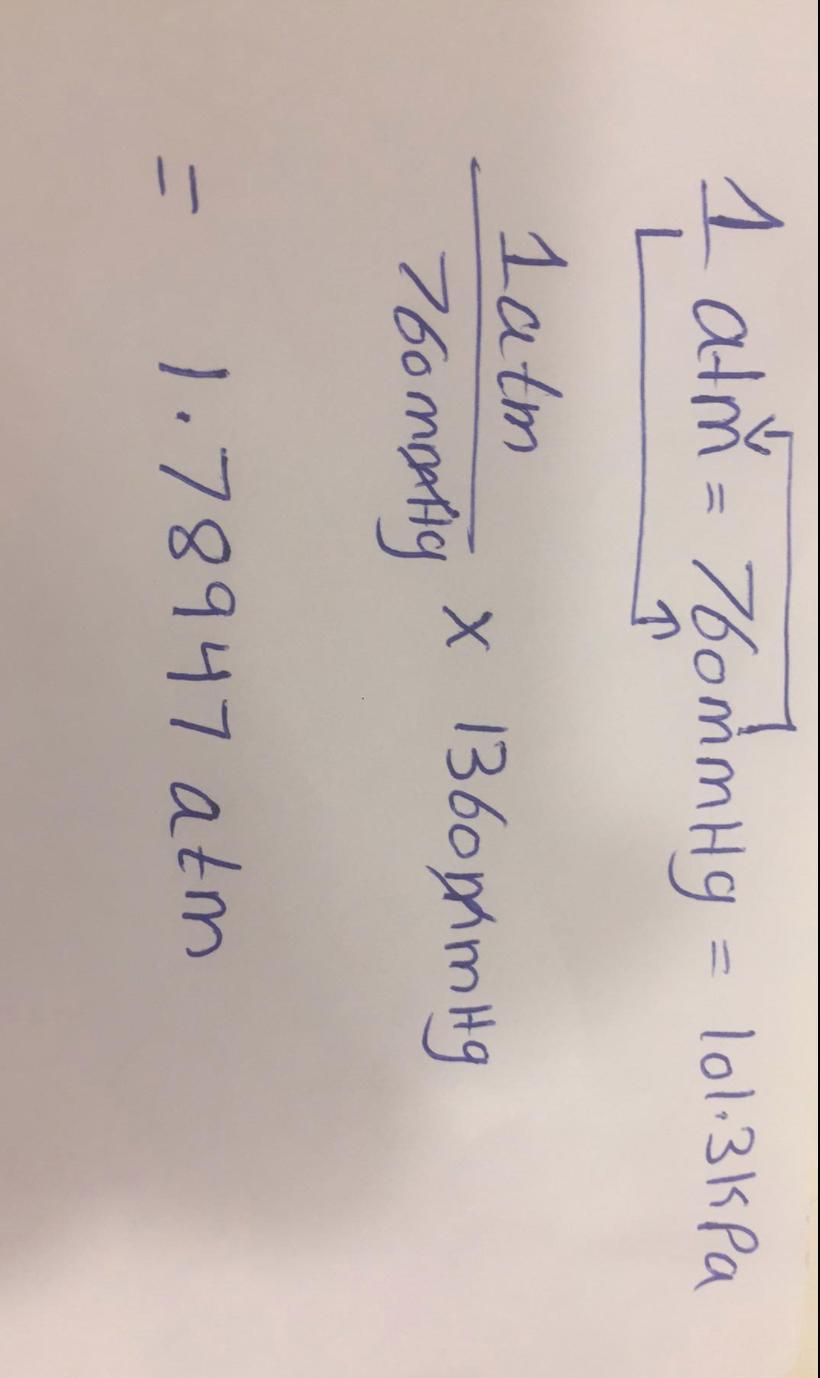 1 atm = 760mmHg = 101.3kPa
1atm
760mmHg x 1360mmHg
= 1.78947 atm